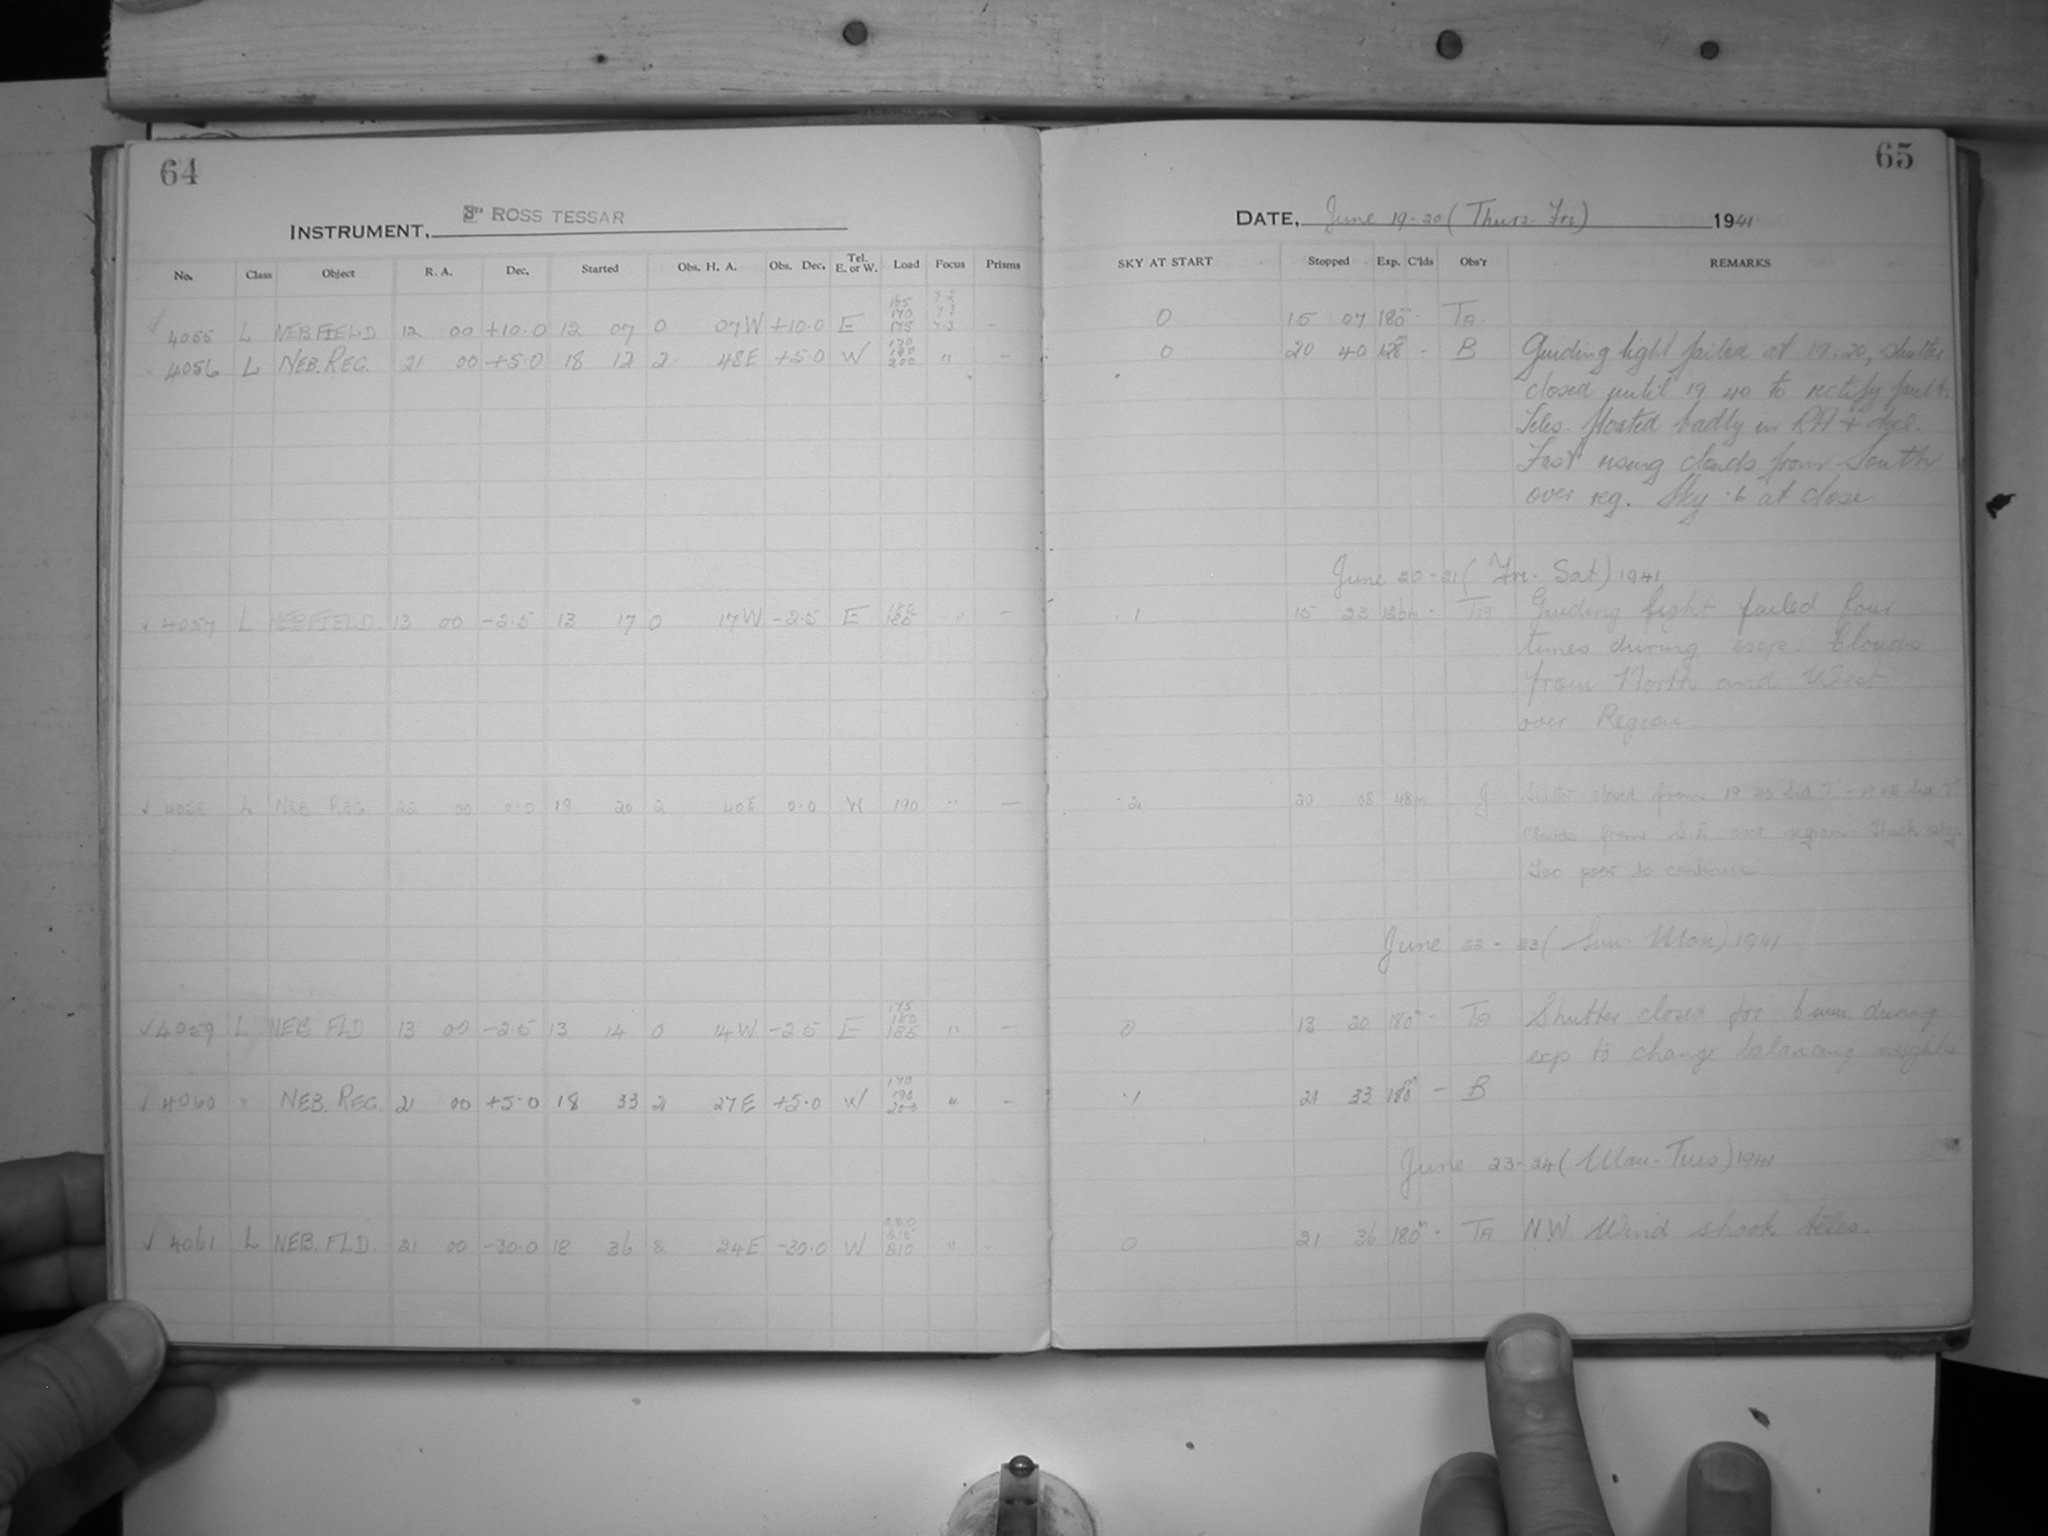 64
INSTRUMENT, 3" ROSS TESSAR
No. Class Object R. A. Dec. Started Obs. H. A. Obs. Dec. Tel. E. or W. Load Focus Prisms
165 7.2
170 7.3
4055 L NEB FIELD 12 00 +10.0 12 07 0 07W +10.0 E 175 7.3 -
170
180
4056 L NEB. REG. 21 00 +5.0 18 12 2 48E +5.0 W 200 " -
4057 L NEB FIELD 13 00 -2.5 13 17 0 17W -2.5 E 185 " -
4058 L NEB REG 22 00 0.0 19 20 2 40E 0.0 W 190 " -
175
180
✓ 4059 L NEB FLD 13 00 -2.5 13 14 0 14W -2.5 E 185 " -
170
190
✓ 4060 " NEB. REG. 21 00 +5.0 18 33 2 27E +5.0 W 200 " -
200
205
✓ 4061 L NEB. FLD. 21 00 -30.0 18 36 2 24E -30.0 W 210 "
65
DATE, June 19-20 (Thurs. Fri) 1941
SKY AT START Stopped Exp. C'lds Obs'r REMARKS
0 15 07 180m - Ta.
0 20 40 128m - B Guiding light failed at 19:20, shutter
closed until 19 40 to rectify fault.
Teles. floated badly in RA + decl.
Fast rising clouds from South
over reg. Sky .6 at close
June 20-21 (Fri. Sat) 1941
.1 15 23 126m - Ta Guiding light failed four
times during exp. Clouds
from North and West
over Region.
.2 20 08 48m J. Shutter closed from 19
clouds from over region
Too poor to continue
June 22-23 (Sun. Mon) 1941
0 13 20 180m - Ta Shutter closed for 6 min. during
exp to change balancing weights
.1 21 33 180m - B
June 23-24 (Mon-Tues) 1941
0 21 36 180m - Ta NW Wind shook teles.